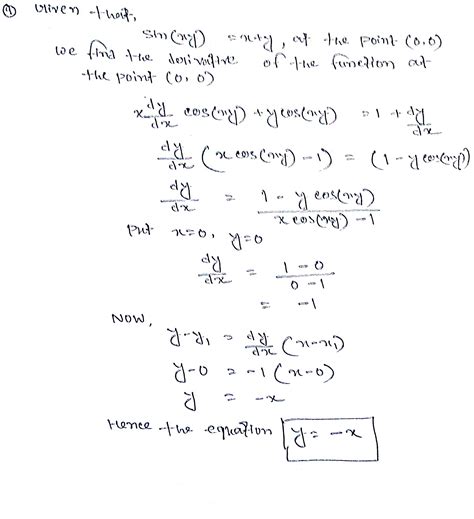 ① Given that,
sin(xy) = x+y, at the point (0,0)
we find the derivative of the function at
the point (0,0)
x dy/dx cos(xy) + y cos(xy) = 1 + dy/dx
dy/dx (x cos(xy) - 1) = (1 - y cos(xy))
dy/dx = 1 - y cos(xy) / x cos(xy) - 1
put x=0, y=0
dy/dx = 1 - 0 / 0 - 1
= -1
Now,
y-y₁ = dy/dx (x-x₁)
y-0 = -1(x-0)
y = -x
Hence the equation y = -x